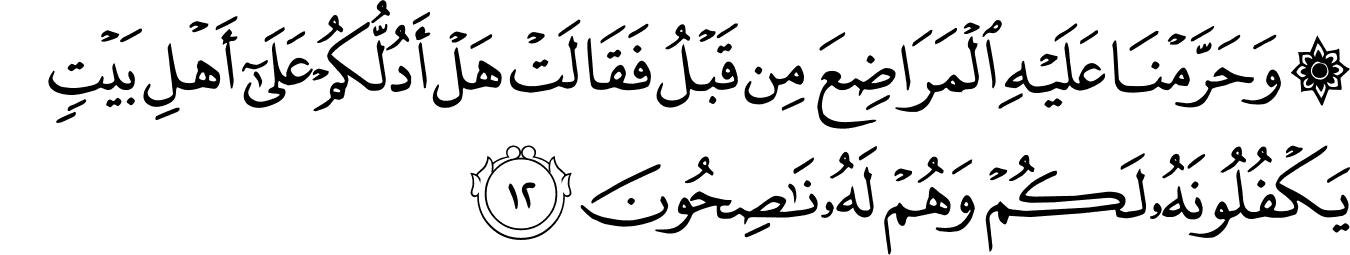 ۞ وَحَرَّمْنَا عَلَيْهِ ٱلْمَرَاضِعَ مِن قَبْلُ فَقَالَتْ هَلْ أَدُلُّكُمْ عَلَىٰٓ أَهْلِ بَيْتٍ
يَكْفُلُونَهُۥ لَكُمْ وَهُمْ لَهُۥ نَـٰصِحُونَ ١٢